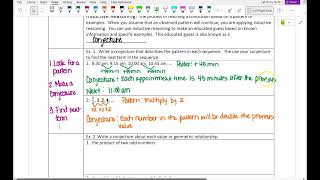 Inductive Reasoning: The process of reaching a conclusion based on a pattern of
examples. When you assume that an observed pattern will continue, you are applying inductive
reasoning. You can use inductive reasoning to make an educated guess based on known
information and specific examples. This educated guess is also known as a
Conjecture
Ex. 1 Write a conjecture that describes the pattern in each sequence. The use your conjecture
to find the next term in the sequence.
1. 8:30 am, 9:15 am, 10:00 am, 10:45 am, ...
Patter: + 45 min
+45min +45min +45min
Conjecture: Each appointment time is 45 minutes after the previous
Next: 11:30 am
1. Look for a
pattern
2. Make a
Conjecture
3. Find next
term
Pattern: multiply by 2
x2 x2 x2
Conjecture: Each number in the pattern will be double the previous
value
Ex. 2 Write a conjecture about each value or geometric relationship.
1. the product of two odd numbers